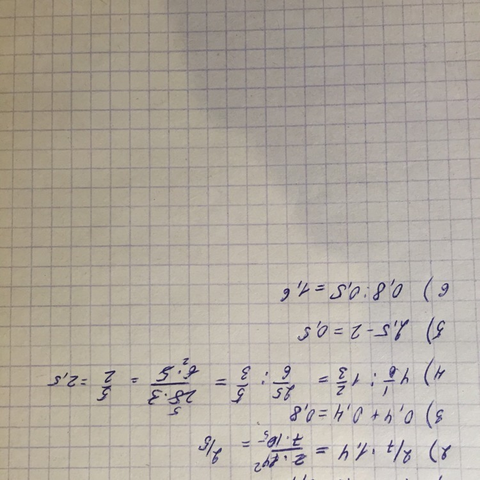 2) 2/7 · 1,4 = 2·14²/7·10₅ = 2/5
3) 0,4 + 0,4 = 0,8
4) 4 1/6 : 1 2/3 = 25/6 : 5/3 = 25·3/6·5 = 5/2 = 2,5
5) 2,5 - 2 = 0,5
6) 0,8 : 0,5 = 1,6